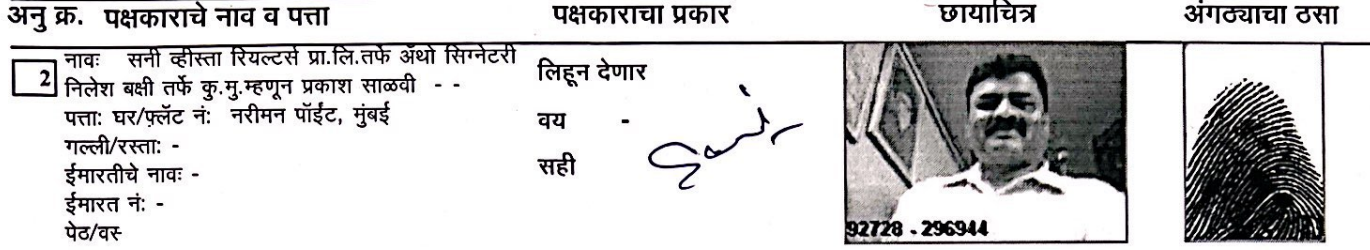 अनु क्र. पक्षकाराचे नाव व पत्ता पक्षकाराचा प्रकार छायाचित्र अंगठ्याचा ठसा
2
नावः सनी व्हीस्ता रियल्टर्स प्रा.लि.तर्फे ॲथो सिग्नेटरी
निलेश बक्षी तर्फे कु.मु.म्हणून प्रकाश साळवी - -
पत्ता: घर/फ़्लॅट नं: नरीमन पॉईंट, मुंबई
गल्ली/रस्ता: -
ईमारतीचे नावः -
ईमारत नं: -
पेठ/वस
लिहून देणार
वय -
सही
92728 - 296944